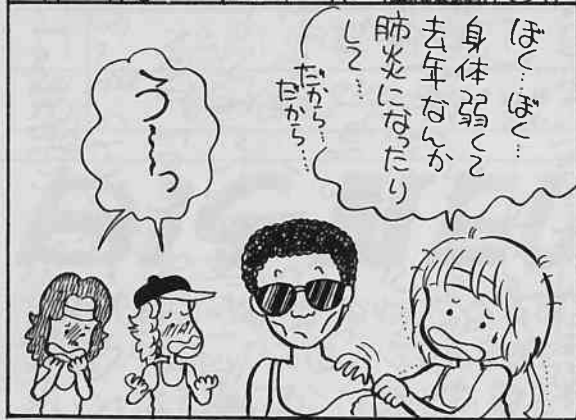 ぼく…ぼく…
身体弱くて
去年なんか
肺炎になったり
して…
だから…
だから…
う〜〜っ